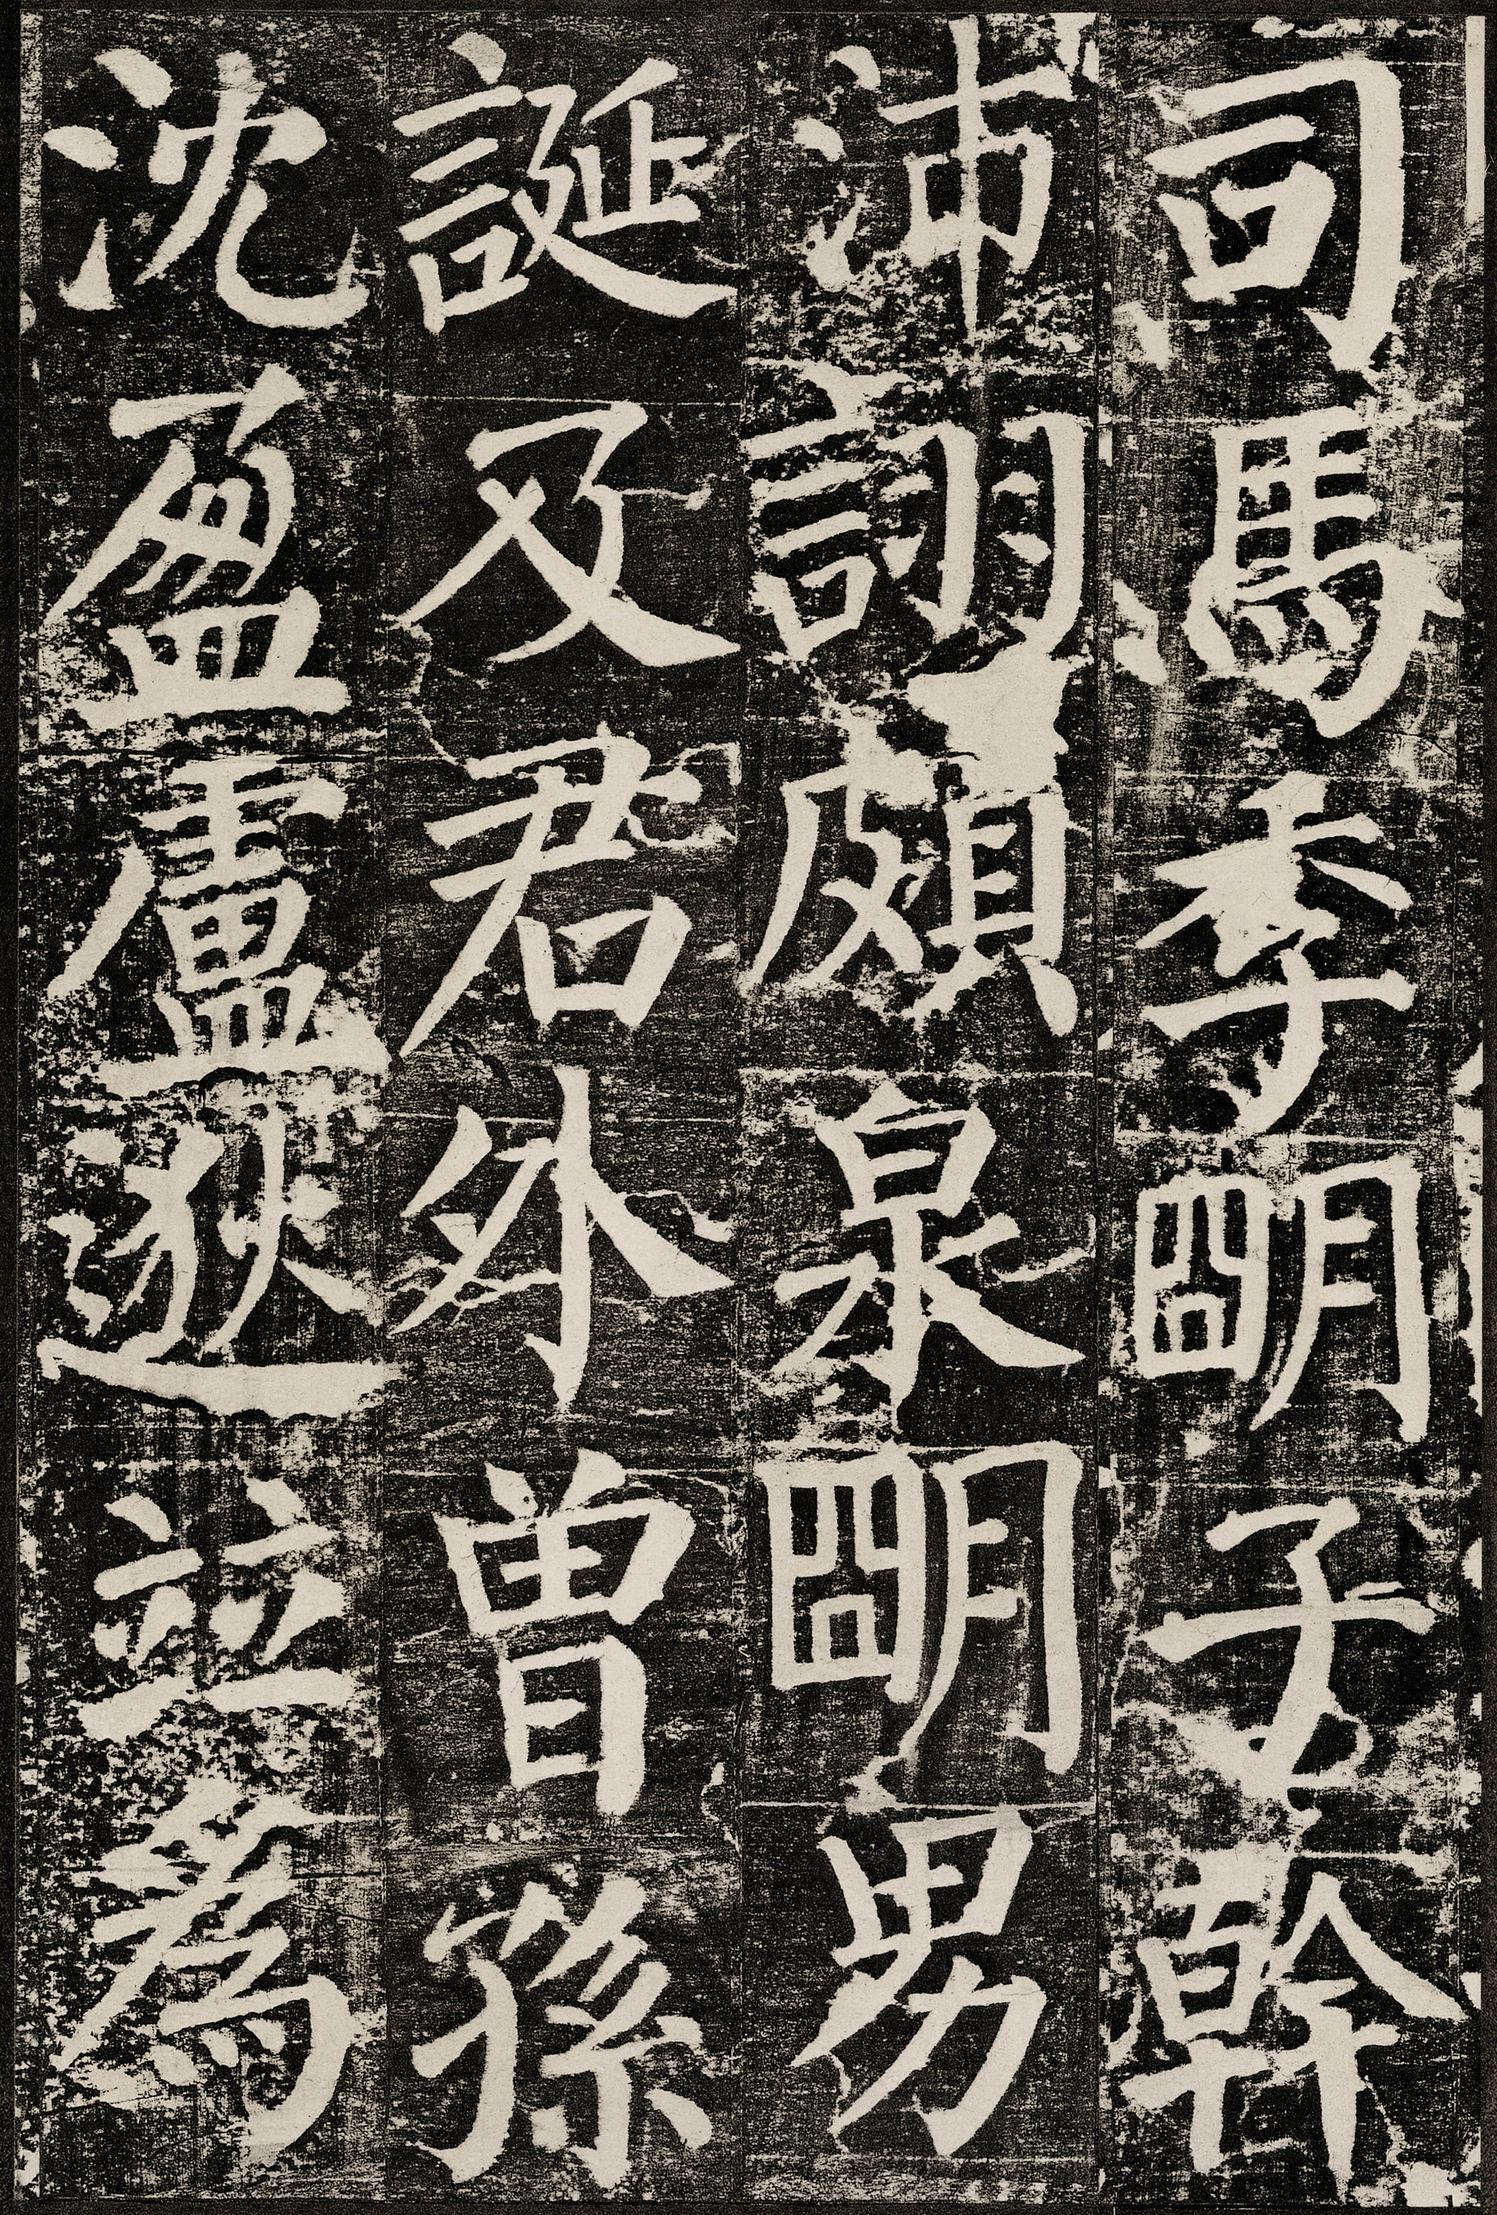 司馬季明子幹
沛詡頗泉明男
誕及君外曾孫
沈盈盧逖並為